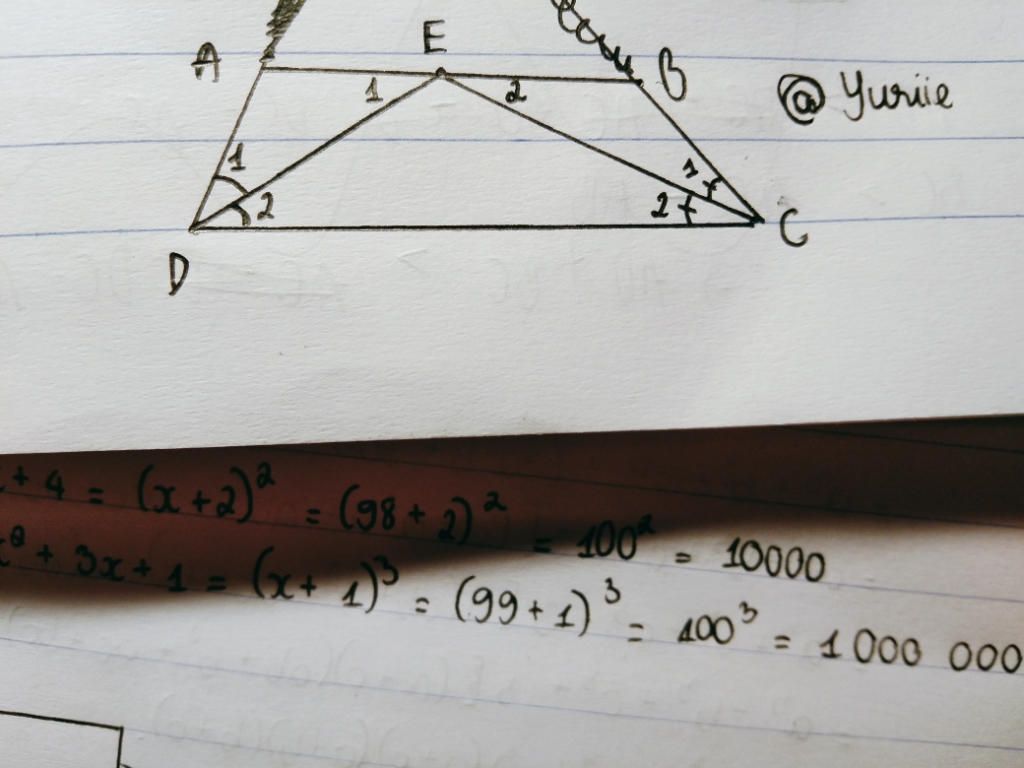 A E B
1 2
@ Yuriie
1 1
2 2
D C
+ 4 = (x+2)² = (98 + 2)² = 100² = 10000
+ 3x + 1 = (x + 1)³ = (99 + 1)³ = 100³ = 1 000 000